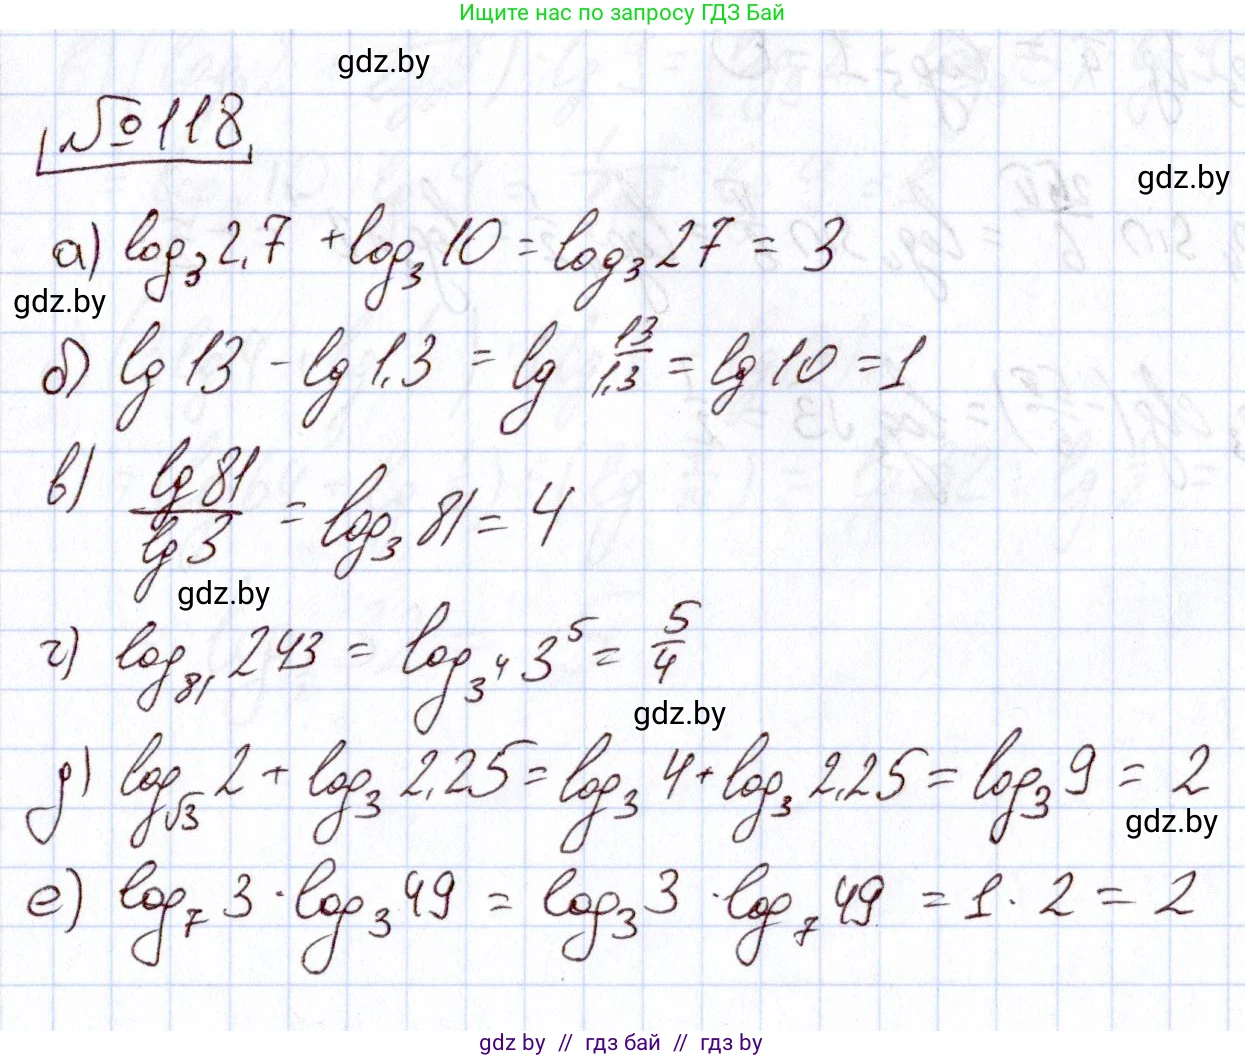 Ищите нас по запросу ГДЗ Бай
gdz.by
№118
gdz.by
а) log₃ 2,7 + log₃ 10 = log₃ 27 = 3
gdz.by
б) lg 13 - lg 1,3 = lg 13/1,3 = lg 10 = 1
в) lg 81 / lg 3 = log₃ 81 = 4
gdz.by
г) log₈₁ 243 = log₃⁴ 3⁵ = 5/4
gdz.by
д) log√3 2 + log₃ 2,25 = log₃ 4 + log₃ 2,25 = log₃ 9 = 2
gdz.by
е) log₇ 3 · log₃ 49 = log₃ 3 · log₇ 49 = 1 · 2 = 2
gdz by // гдз бай // гдз by